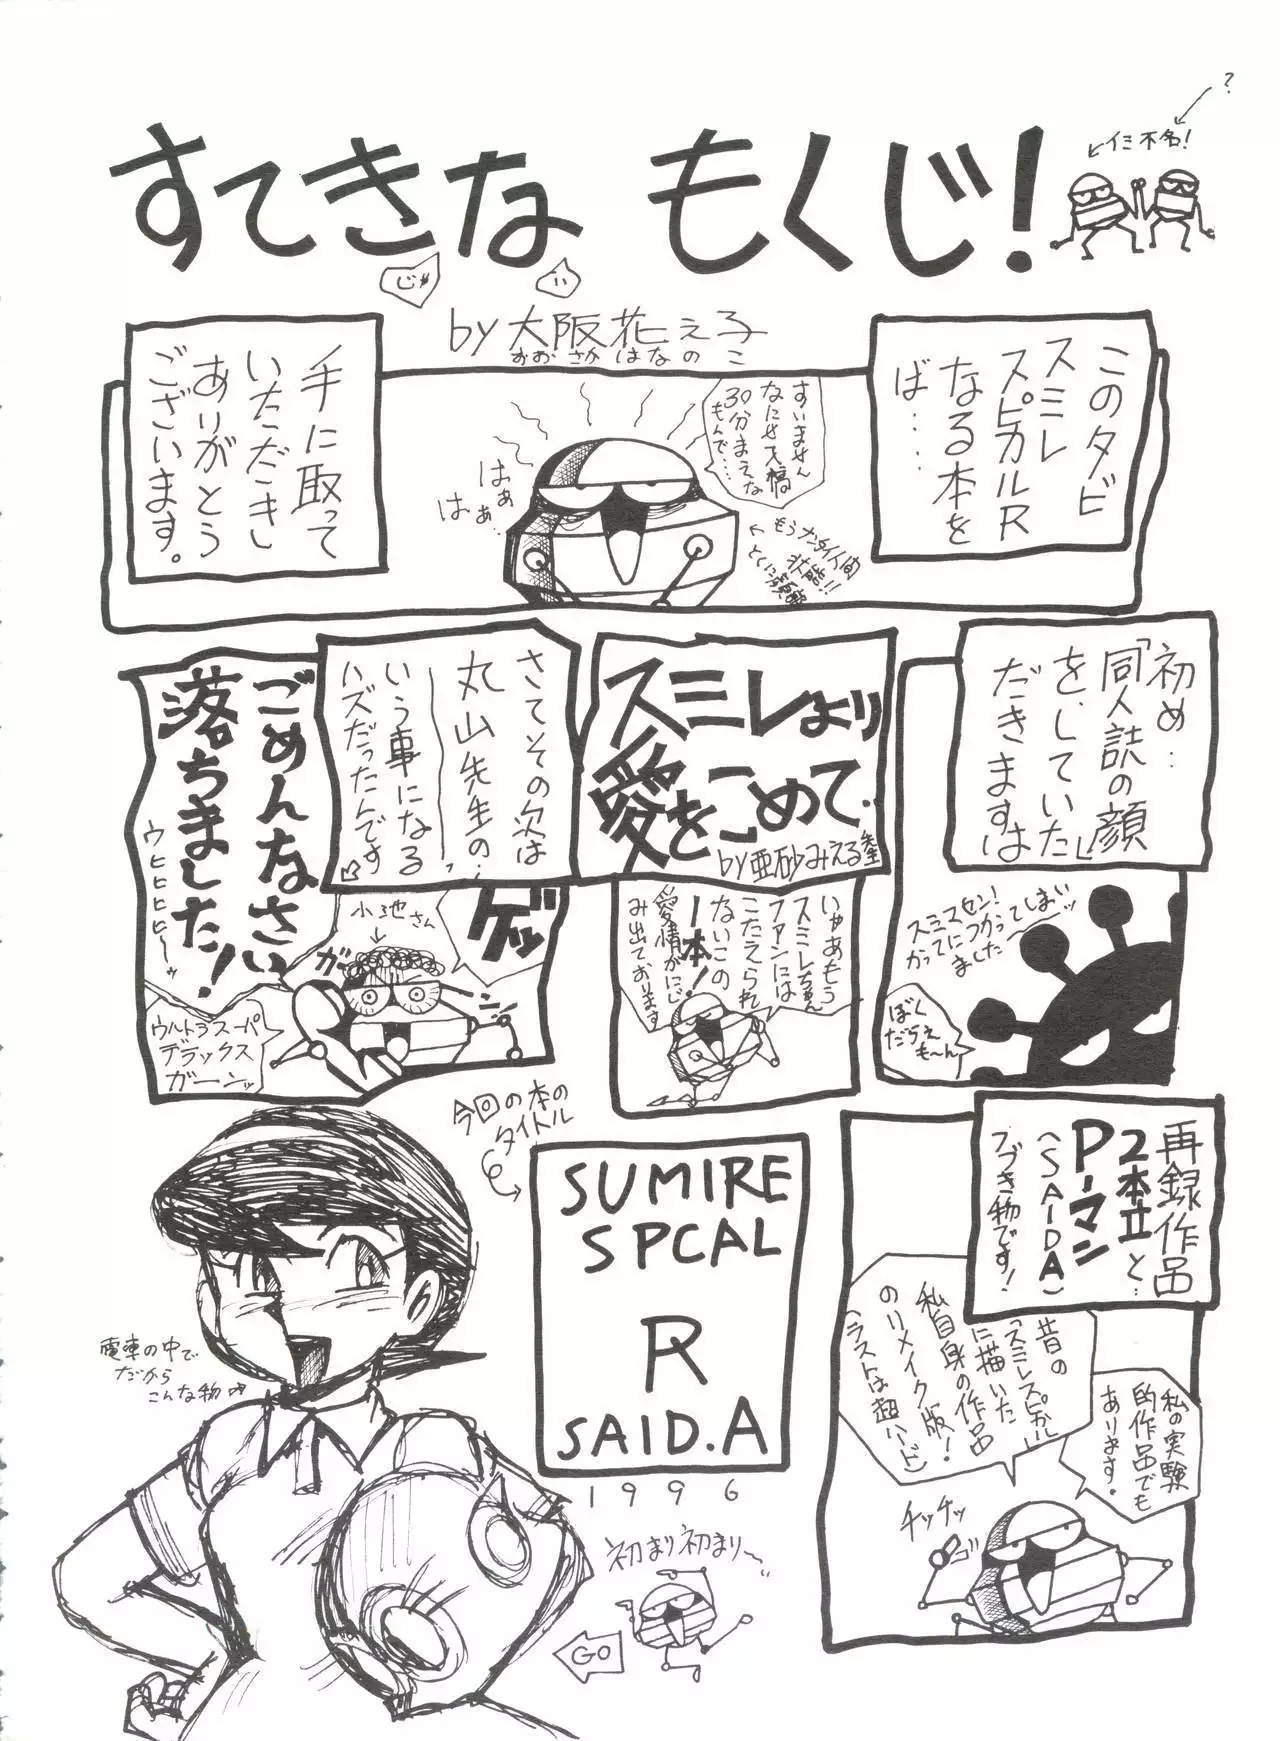 ?
イミ不名!
すてきな もくじ!
じゃ
by 大阪花ぇ子
おおさかはなのこ
このタビ
スミレ
スピカルR
なる本を
ば……
手に取って
いただきし
ありがとう
ございます。
すいません
なにせ天稿
30分まえな
もんで…
はぁ
はぁ…
もうナイ人間
状態!!
とくに顔
初め…
「同人誌の顔」
をしていた
だきますは
スミスセン!
かってにつかってしまいッ
ました
ぼく
だらえ
も〜ん
スミレより
愛をこめて.
by亜砂みえる先生
いやあもう
スミレちゃん
ファンには
こたえられ
ないこの
一本!
愛情がにじ
み出ております
さてその次は
丸山先生の…
いう事になる
ハズだったんです
ゲッ
ごめんなさい
落ちました!
ウヒヒヒヒ〜ッ
小池さん
ガーン
ウルトラスーパー
デラックス
ガーンッ
再録作品
2本立と…
P-マン
(SAIDA)
つづき物です!
昔の
「スミレスピカル」
に描いた
私自身の作品
のリメイク版!
(ラストは超ハード)
私の実験
的作品でも
あります。
チッチッ
今回の本の
タイトル
SUMIRE
SPCAL
R
SAID.A
1996
電車の中で
だから
こんな物
初まり初まり〜
GO